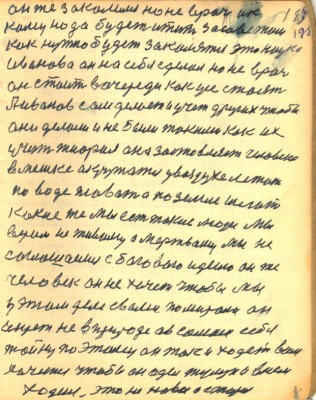 он же закалил но не врач их
кому нода будет итить за советом
как нужно будет закалятся это наука
Иванова он на себя сделал но не врач
он стоит в очереди как уже стоят
Иванов сам делает и учет других чтобы
они делали и не были такими как их
учит теория она заставляет человека
в мешке а другая в воздухе летат
по воде плавата по земле
какие же мы есть такие люди мы
верим не живому а мертвому мы не
соглашаемся с богового идею он же
человек он не хочет чтобы мы
у этом деле своем помирали он
секрет не в природе а в самом себе
тайну поэтому он так и ходет вам
хочется чтобы он одел шубу и в нем
ходил, это не ново а старо